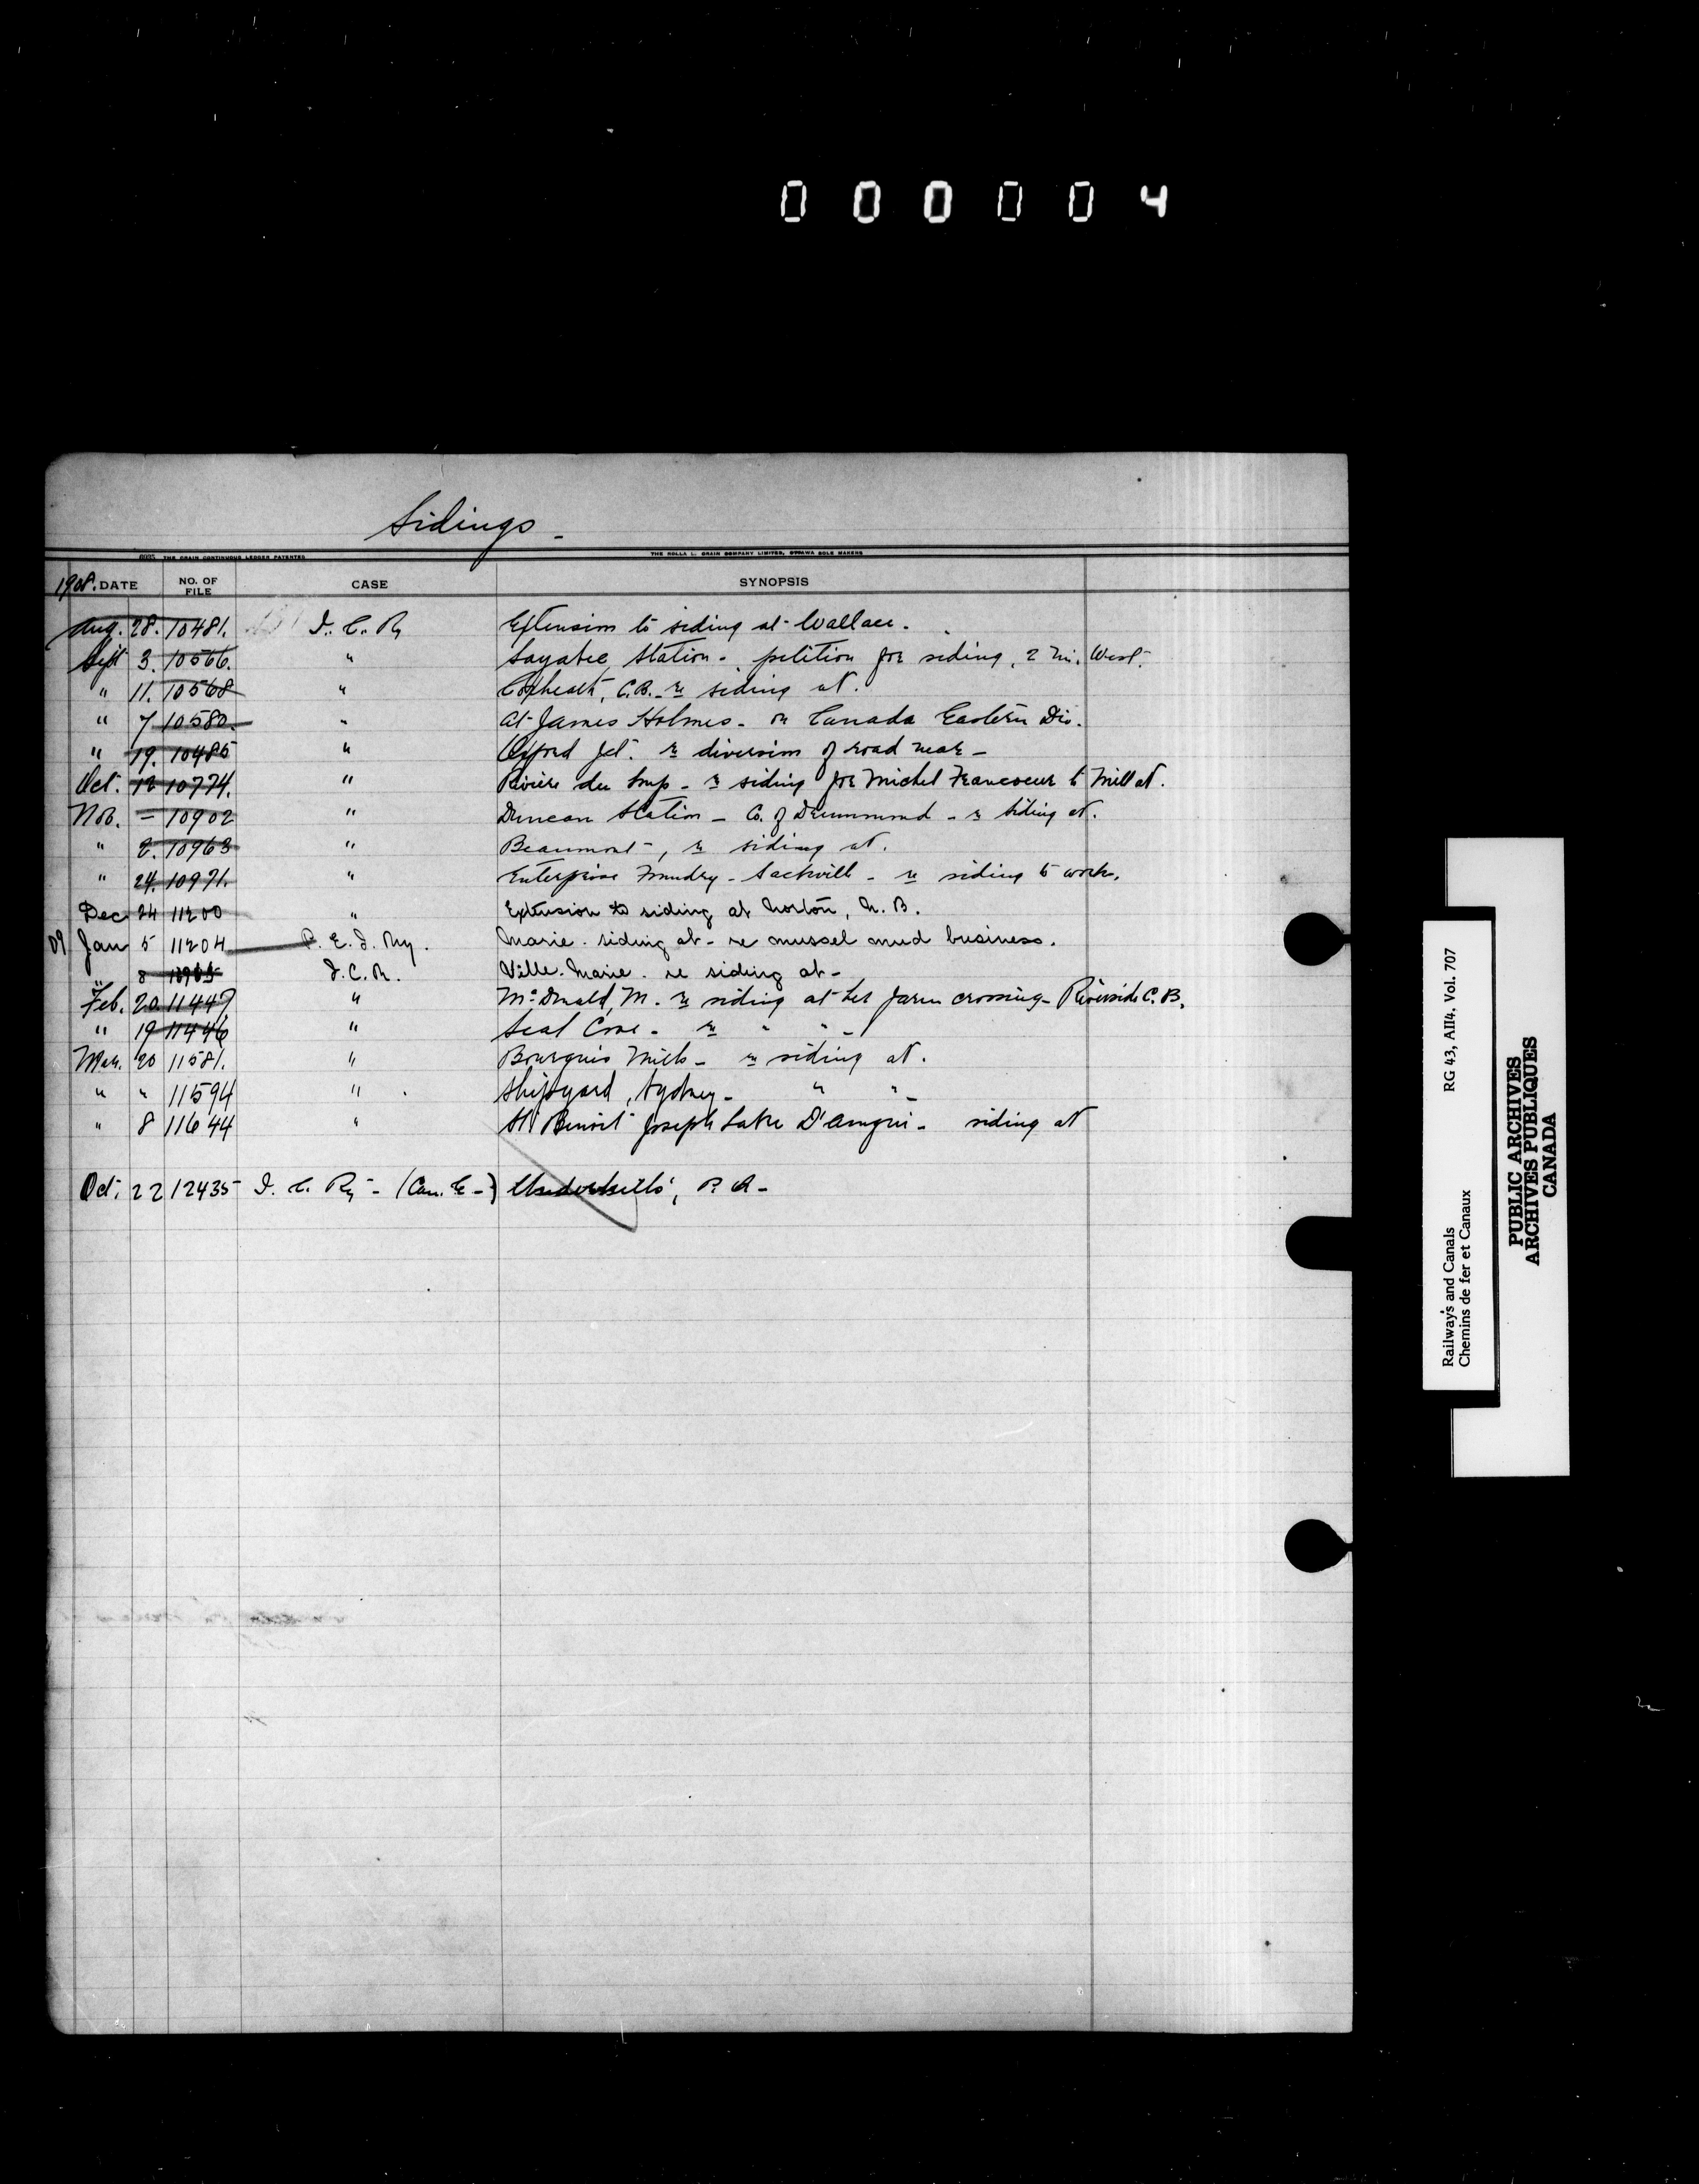 000004
Sidings -
THE CRAIN CONTINUOUS LEDGER PATENTED THE ROLLA L. CRAIN COMPANY LIMITED, OTTAWA SOLE MAKERS
1908. DATE NO. OF FILE CASE SYNOPSIS
Aug. 28. 10481. I. C. Ry Extension to siding at Wallace.
Sept 3. 10566. " Sayabec Station - petition for siding, 2 mi. West.
" 11. 10568 " Coxheath, C.B. - re siding at.
" 7 10580. " At James Holmes - on Canada Eastern Div.
" 19. 10485 " Oxford Jct. re diversion of road near -
Oct. 12 10774. " Riviere du Loup - re siding for Michel Francoeur to Mill at.
Nov. - 10902 " Duncan Station - Co. of Drummond - re siding at.
" 2. 10963 " Beaumont -, re siding at.
" 24. 10971. " Enterprise Foundry - Sackville - re siding to works.
Dec 24 11200 " Extension to siding at Norton, N. B.
09 Jan 5 11204 P. E. I. Ry. Marie. siding at - re mussel mud business.
" 8 I.C.R. Ville. Marie. re siding at -
Feb. 20 11447 " McDonald, M. re siding at her farm crossing - Riverside C. B.
" 19 11446 " Seal Cove - re " " -
Mar. 20 11581. " Mills - re siding at.
" " 11594 " Shipyard, Sydney - " " -
" 8 11644 " St. Benoit Joseph Labre D'Amqui - siding at
Oct. 22 12435 I. C. Ry - (Can. E -) Underhills', P. A -
RG 43, AII4, Vol. 707
Railways and Canals
Chemins de fer et Canaux
PUBLIC ARCHIVES
ARCHIVES PUBLIQUES
CANADA